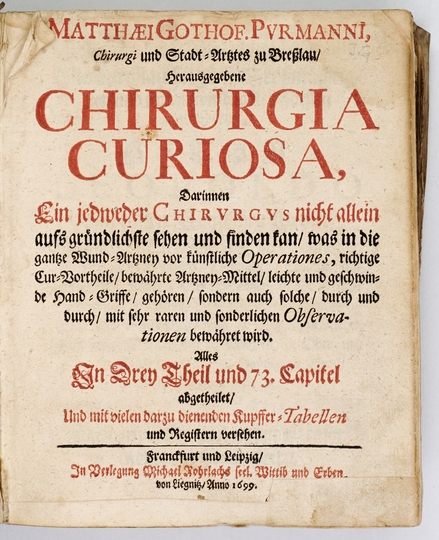 MATTHÆI GOTHOF. PVRMANNI,
Chirurgi und Stadt-Artztes zu Breßlau/
Herausgegebene
CHIRURGIA
CURIOSA,
Darinnen
Ein jedweder CHIRVRGVS nicht allein
aufs gründlichste sehen und finden kan/ was in die
gantze Wund-Artzney vor künstliche Operationes, richtige
Cur-Vortheile/ bewährte Artzney-Mittel/ leichte und geschwin-
de Hand-Griffe/ gehören/ sondern auch solche/ durch und
durch/ mit sehr raren und sonderlichen Observa-
tionen bewähret wird.
Alles
In Drey Theil und 73. Capitel
abgetheilet/
Und mit vielen darzu dienenden Kupffer-Tabellen
und Registern versehen.
Franckfurt und Leipzig/
In Verlegung Michael Rohrlachs seel. Wittib und Erben
von Liegnitz/ Anno 1699.